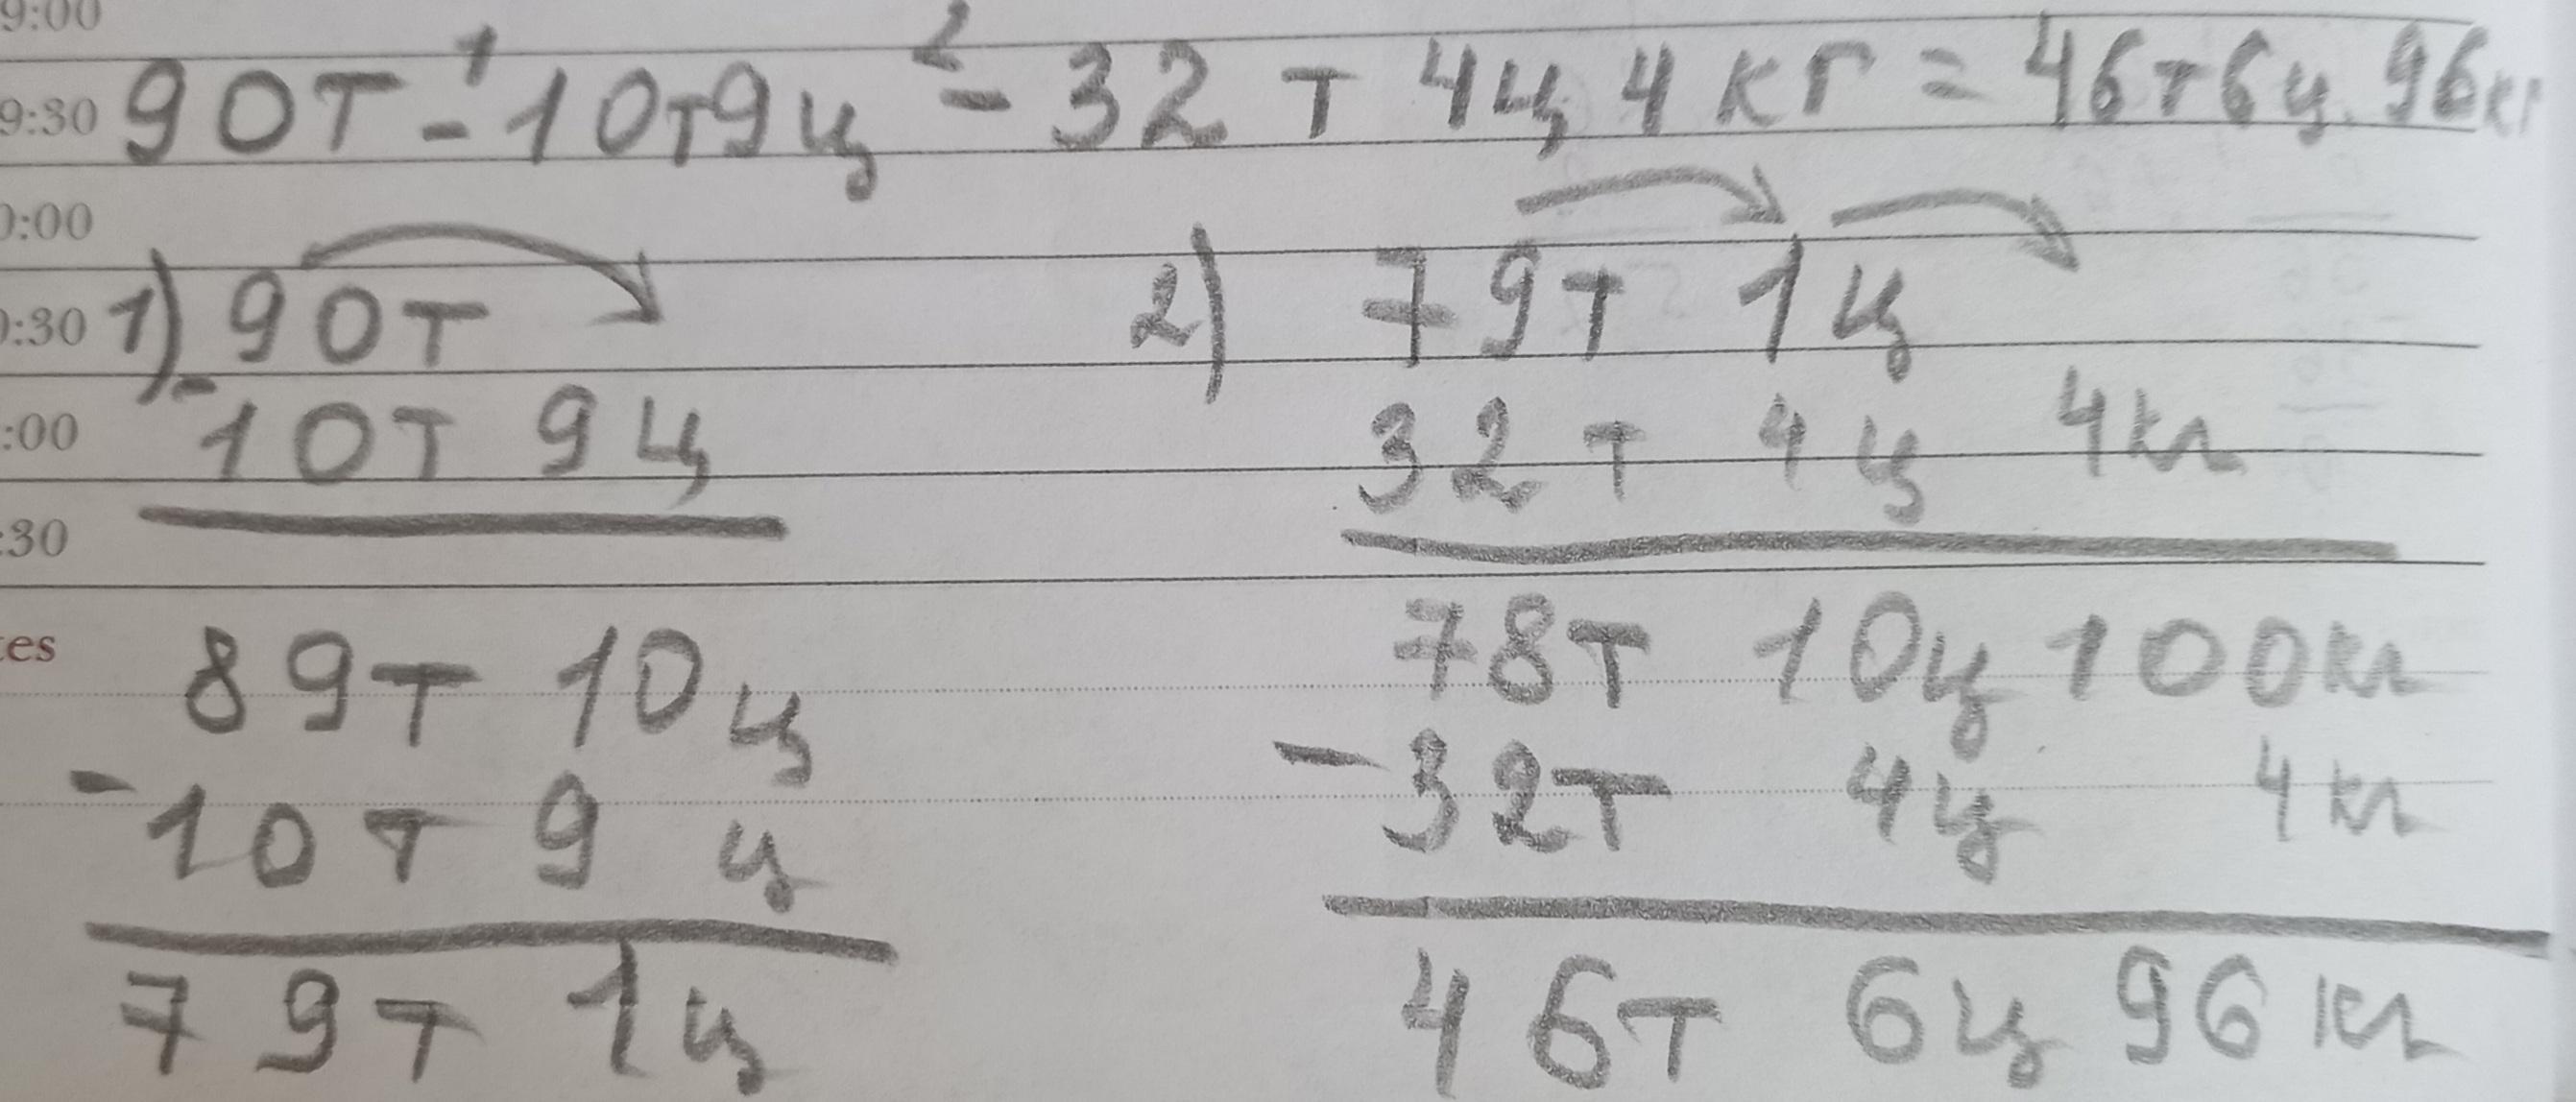 9:00
9:30 90т - 10т9ц - 32 т 4ц 4 кг = 46т6ц 96кг
1 2
0:00
0:30 1) 90т
:00 - 10т 9ц
:30
tes
89т 10ц
- 10т 9 ц
79т 1ц
2) 79т 1ц
32т 4ц 4кг
78т 10ц 100кг
- 32т 4ц 4кг
46т 6ц 96кг